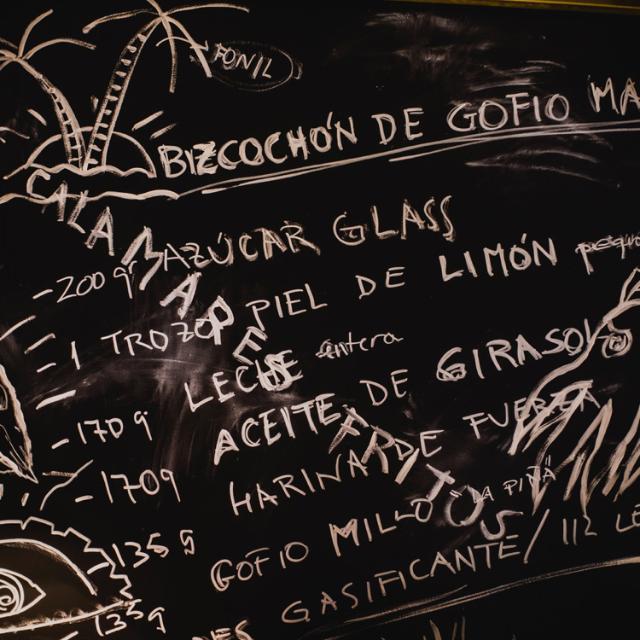 FONIL
BIZCOCHÓN DE GOFIO MA
CALAMARES FRITOS
- 200 g AZÚCAR GLASS
- 1 TROZO PIEL DE LIMÓN
- 170 g LECHE entera
- 170 g ACEITE DE GIRASOL
- 135 g HARINA DE FUERZA
- 135 g GOFIO MILLO "LA PIÑA"
GASIFICANTE /